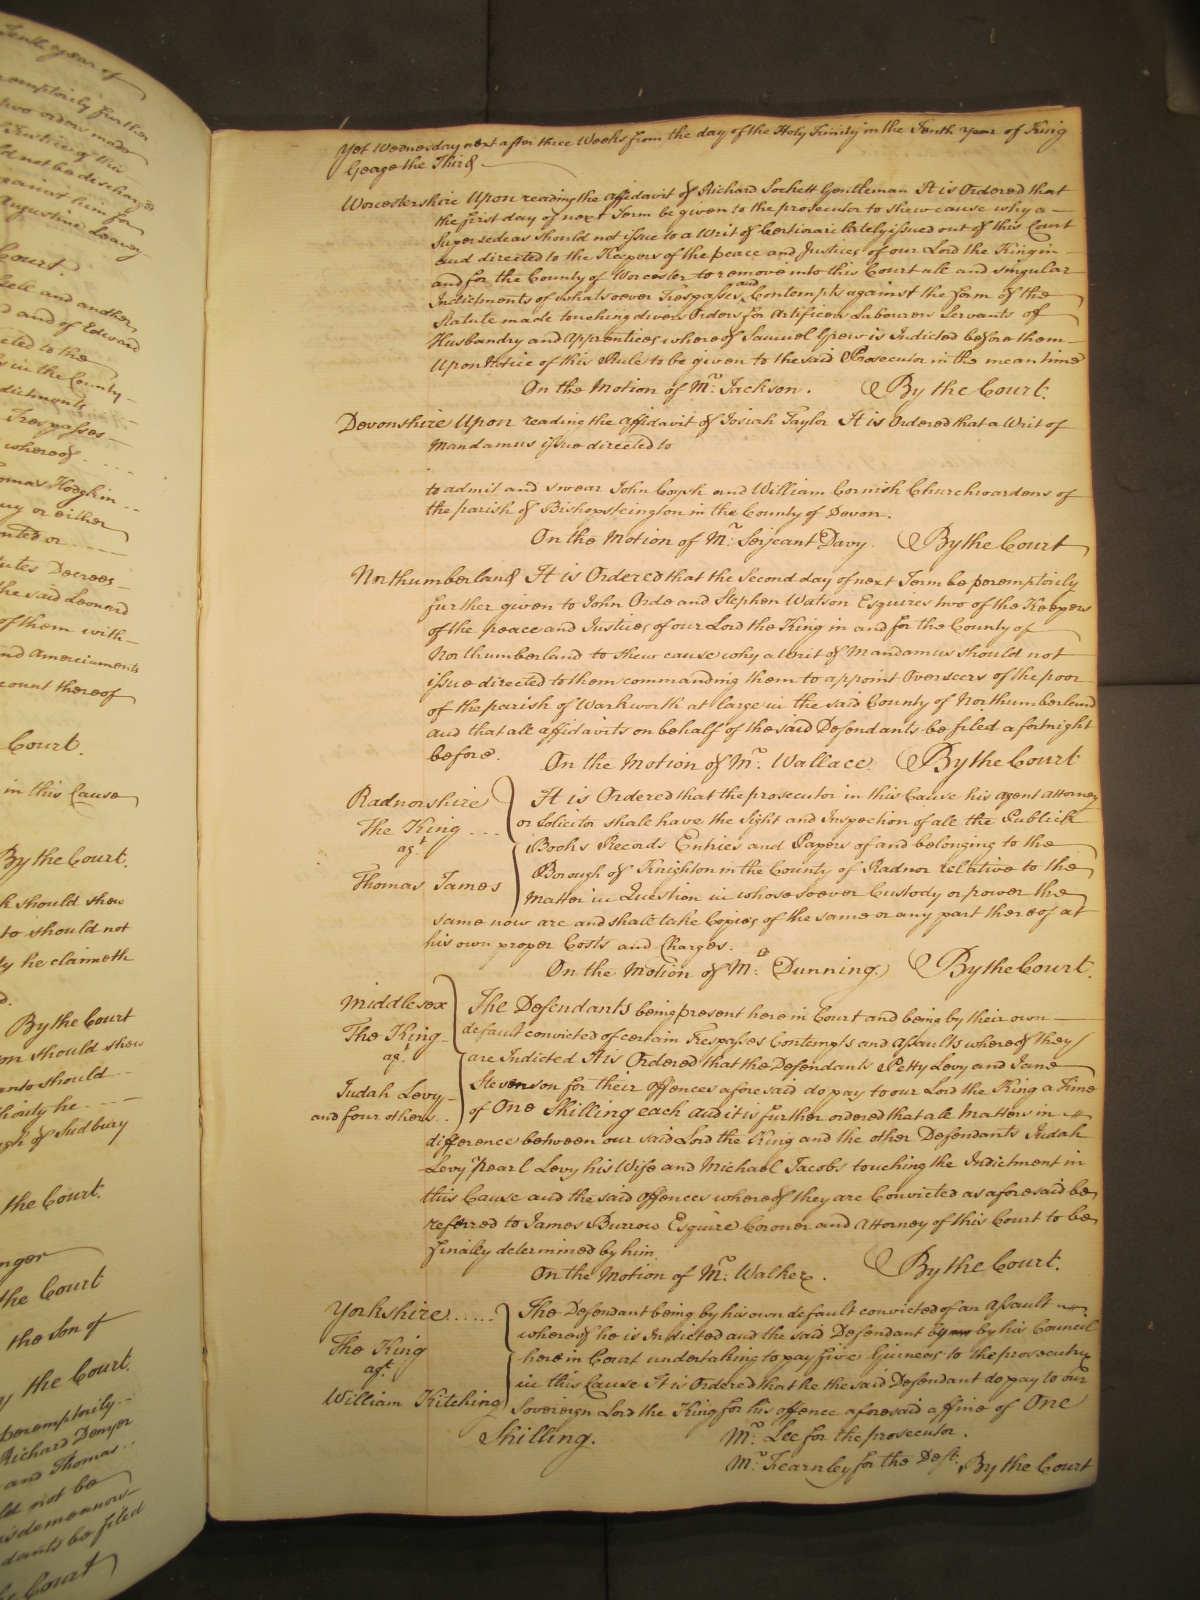 Tenth year of
emptorily further
two orders made
Justices of this
ld not be discharged
against him for
Augustine Leavey
Court.
Lell and another
d and of Edward
ected to the
s in the County
dictments
Trespasses
whereof
omas Hodgkin
uy or either
nted or
utes Decrees
the said Leonard
of them with
nd Amerciaments
count thereof
Court.
in this Cause
By the Court.
k should shew
to should not
ly he claimeth
d.
By the Court
on should shew
anto should
thority he
ugh of Sudbury
the Court.
nger
the Court
the son of
y the Court.
peremptorily
Richard Denyer
and Thomas
ld not be
isdemeanors
dants be filed
he Court
Yet Wednesday next after three Weeks from the day of the Holy Trinity in the Tenth year of King
George the Third
Worcestershire Upon reading the affidavit of Richard Sockett Gentleman It is Ordered that
the first day of next Term be given to the prosecutor to shew cause why a
Supersedeas should not issue to a Writ of Certiorari lately issued out of this Court
and directed to the Keepers of the peace and Justices of our Lord the King in
and for the County of Worcester to remove into this Court all and singular
Indictments of whatsoever Trespasses and Contempts against the form of the
Statute made touching divers Orders for Artificers Labourers Servants of
Husbandry and Apprentices whereof Samuel Grew is Indicted before them
Upon Notice of this Rule to be given to the said Prosecutor in the mean time
On the Motion of Mr. Jackson. By the Court.
Devonshire Upon reading the affidavit of Josiah Taylor It is Ordered that a Writ of
Mandamus issue directed to
to admit and swear John Coysh and William Cornish Churchwardens of
the parish of Bishopsteington in the County of Devon.
On the Motion of Mr. Serjeant Davy. By the Court
Northumberland It is Ordered that the Second day of next Term be peremptorily
further given to John Orde and Stephen Watson Esquires two of the Keepers
of the peace and Justices of our Lord the King in and for the County of
Northumberland to shew cause why a Writ of Mandamus should not
issue directed to them commanding them to appoint Overseers of the poor
of the parish of Warkworth at large in the said County of Northumberland
and that all affidavits on behalf of the said Defendants be filed a fortnight
before. On the Motion of Mr. Wallace. By the Court
Radnorshire It is Ordered that the prosecutor in this Cause his agent attorney
The King ... or Solicitor shall have the Sight and Inspection of all the Publick
agt. Books Records Entries and Papers of and belonging to the
Borough of Knighton in the County of Radnor relative to the
Thomas James Matter in Question in whose soever Custody or power the
same now are and shall take Copies of the same or any part thereof at
his own proper Costs and Charges.
On the Motion of Mr. Dunning. By the Court.
Middlesex The Defendants being present here in Court and being by their own
The King default convicted of certain Trespasses Contempts and Assaults whereof they
agt. are Indicted It is Ordered that the Defendants Petty Levy and Jane
Judah Levy Stevenson for their offences aforesaid do pay to our Lord the King a Fine
and four others. of One Shilling each and it is further ordered that all Matters in
difference between our said Lord the King and the other Defendants Judah
Levy Pearl Levy his Wife and Michael Jacobs touching the Indictment in
this Cause and the said offences whereof they are Convicted as aforesaid be
referred to James Burrow Esquire Coroner and Attorney of this Court to be
finally determined by him.
On the Motion of Mr. Walker. By the Court.
Yorkshire..... The Defendant being by his own default convicted of an Assault
The King whereof he is Indicted and the said Defendant by his Council
agt. here in Court undertaking to pay five Guineas to the prosecutrix
in this Cause It is Ordered that he the said Defendant do pay to our
William Kitching Sovereign Lord the King for his offence aforesaid a ffine of One
Shilling. Mr. Lee for the prosecutor.
Mr. Fearnley for the Deft. By the Court